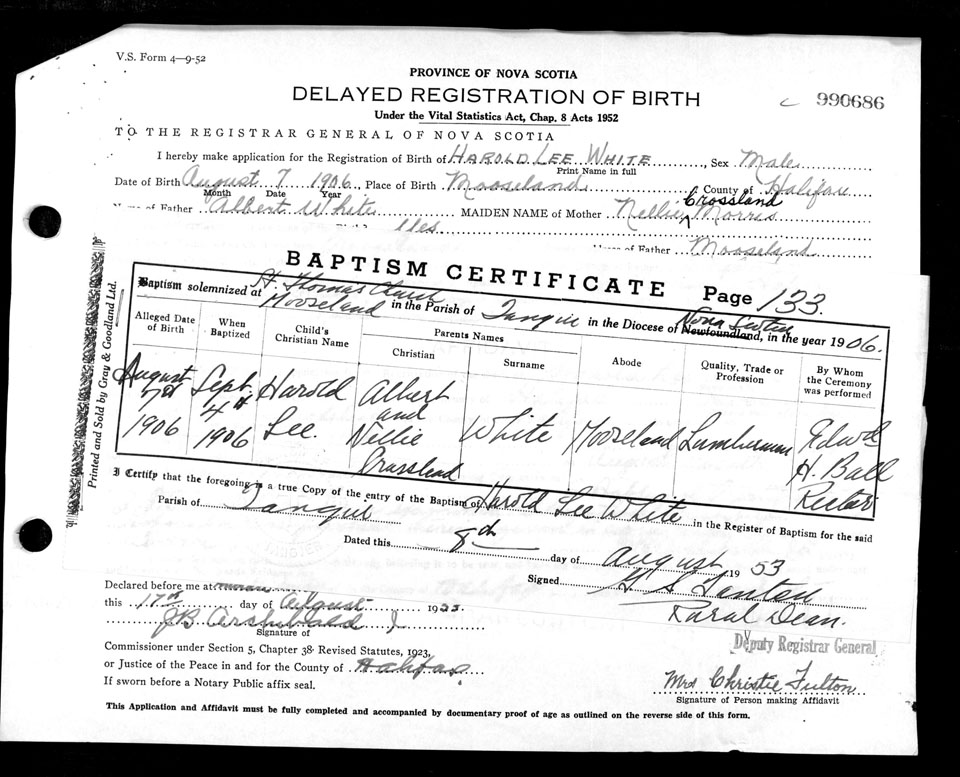 V.S. Form 4—9-52
PROVINCE OF NOVA SCOTIA
DELAYED REGISTRATION OF BIRTH
C 990686
Under the Vital Statistics Act, Chap. 8 Acts 1952
TO THE REGISTRAR GENERAL OF NOVA SCOTIA
I hereby make application for the Registration of Birth of HAROLD LEE WHITE, Sex Male
Print Name in full
Date of Birth August 7 1906, Place of Birth Mooseland, County of Halifax
Month Date Year
Crossland
Name of Father Albert White MAIDEN NAME of Mother Nellie Morris
of Father Mooseland
BAPTISM CERTIFICATE Page 133.
Baptism solemnized at St. Thomas Church Mooseland in the Parish of Tangier in the Diocese of Nova Scotia Newfoundland, in the year 1906.
Alleged Date of Birth
When Baptized
Child's Christian Name
Parents Names
Christian
Surname
Abode
Quality, Trade or Profession
By Whom the Ceremony was performed
August 7th 1906
Sept. 4th 1906
Harold Lee.
Albert and Nellie Crossland
White
Mooseland
Lumberman
Edwd H. Ball Rector
I Certify that the foregoing is a true Copy of the entry of the Baptism of Harold Lee White in the Register of Baptism for the said
Parish of Tangier
Dated this 8th day of August 1953
Signed
Rural Dean.
Printed and Sold by Gray & Goodland Ltd.
Declared before me at
this 17th day of August 1953
J B Archibald
Signature of
Commissioner under Section 5, Chapter 38 Revised Statutes, 1923,
or Justice of the Peace in and for the County of Halifax
If sworn before a Notary Public affix seal.
Deputy Registrar General
Mrs Christie Fulton
Signature of Person making Affidavit
This Application and Affidavit must be fully completed and accompanied by documentary proof of age as outlined on the reverse side of this form.